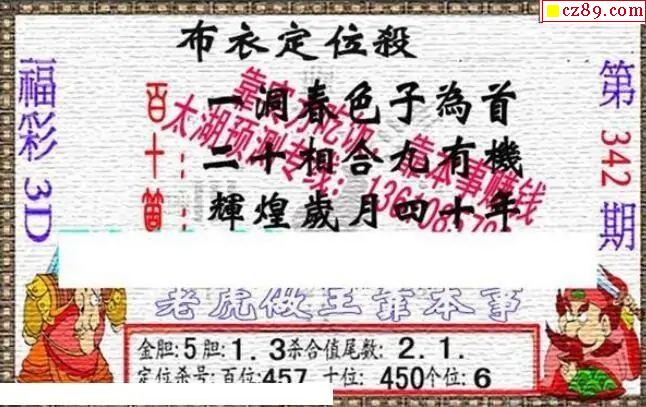 cz89.com
布衣定位殺
福彩3D
第342期
百十
一洞春色子為首
二十相合九有機
輝煌歲月四十年
靠实力吃饭 靠本事赚钱
太湖预测专线:
老虎做王靠本事
金胆:5胆:1.3杀合值尾数:2.1.
定位杀号:百位:457 十位:450个位:6